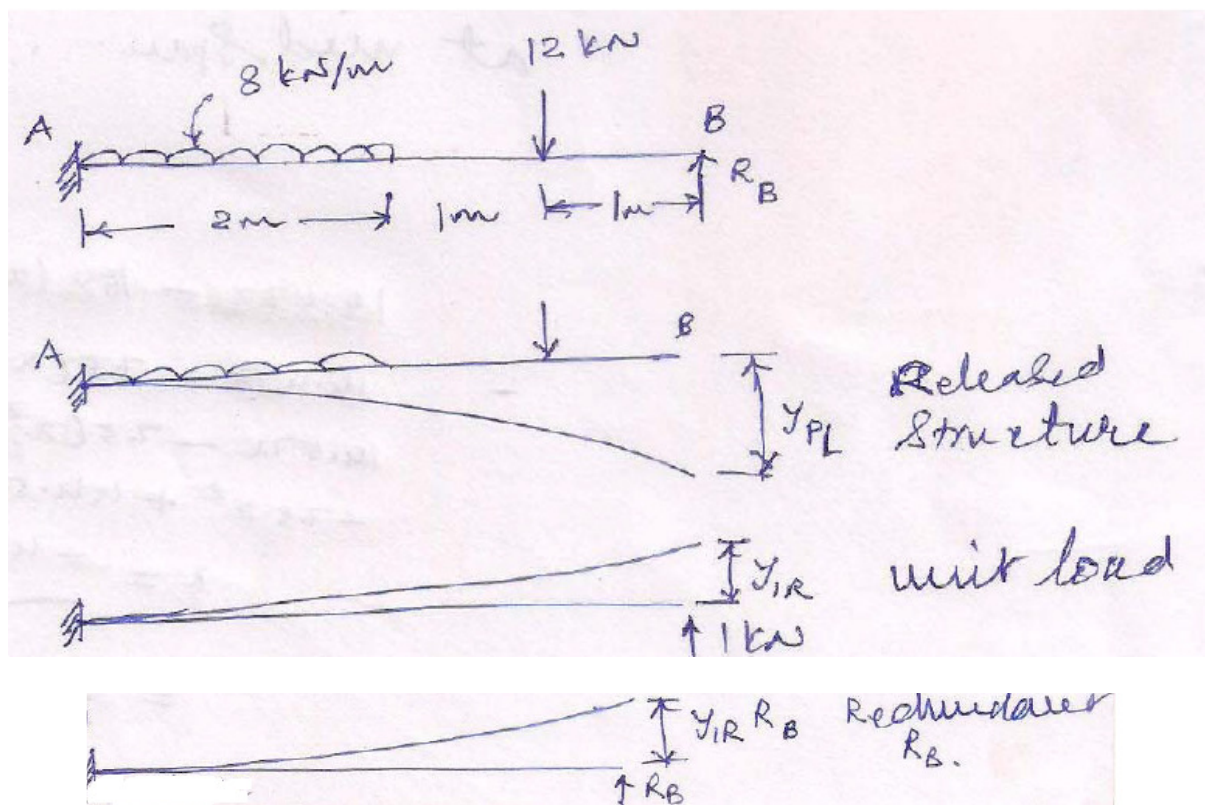 8 kN/m
12 kN
A
B
R_B
2m
1m
1m
A
B
y_PL
Released
Structure
y_1R
unit load
1 kN
y_1R R_B
Redundant
R_B.
R_B